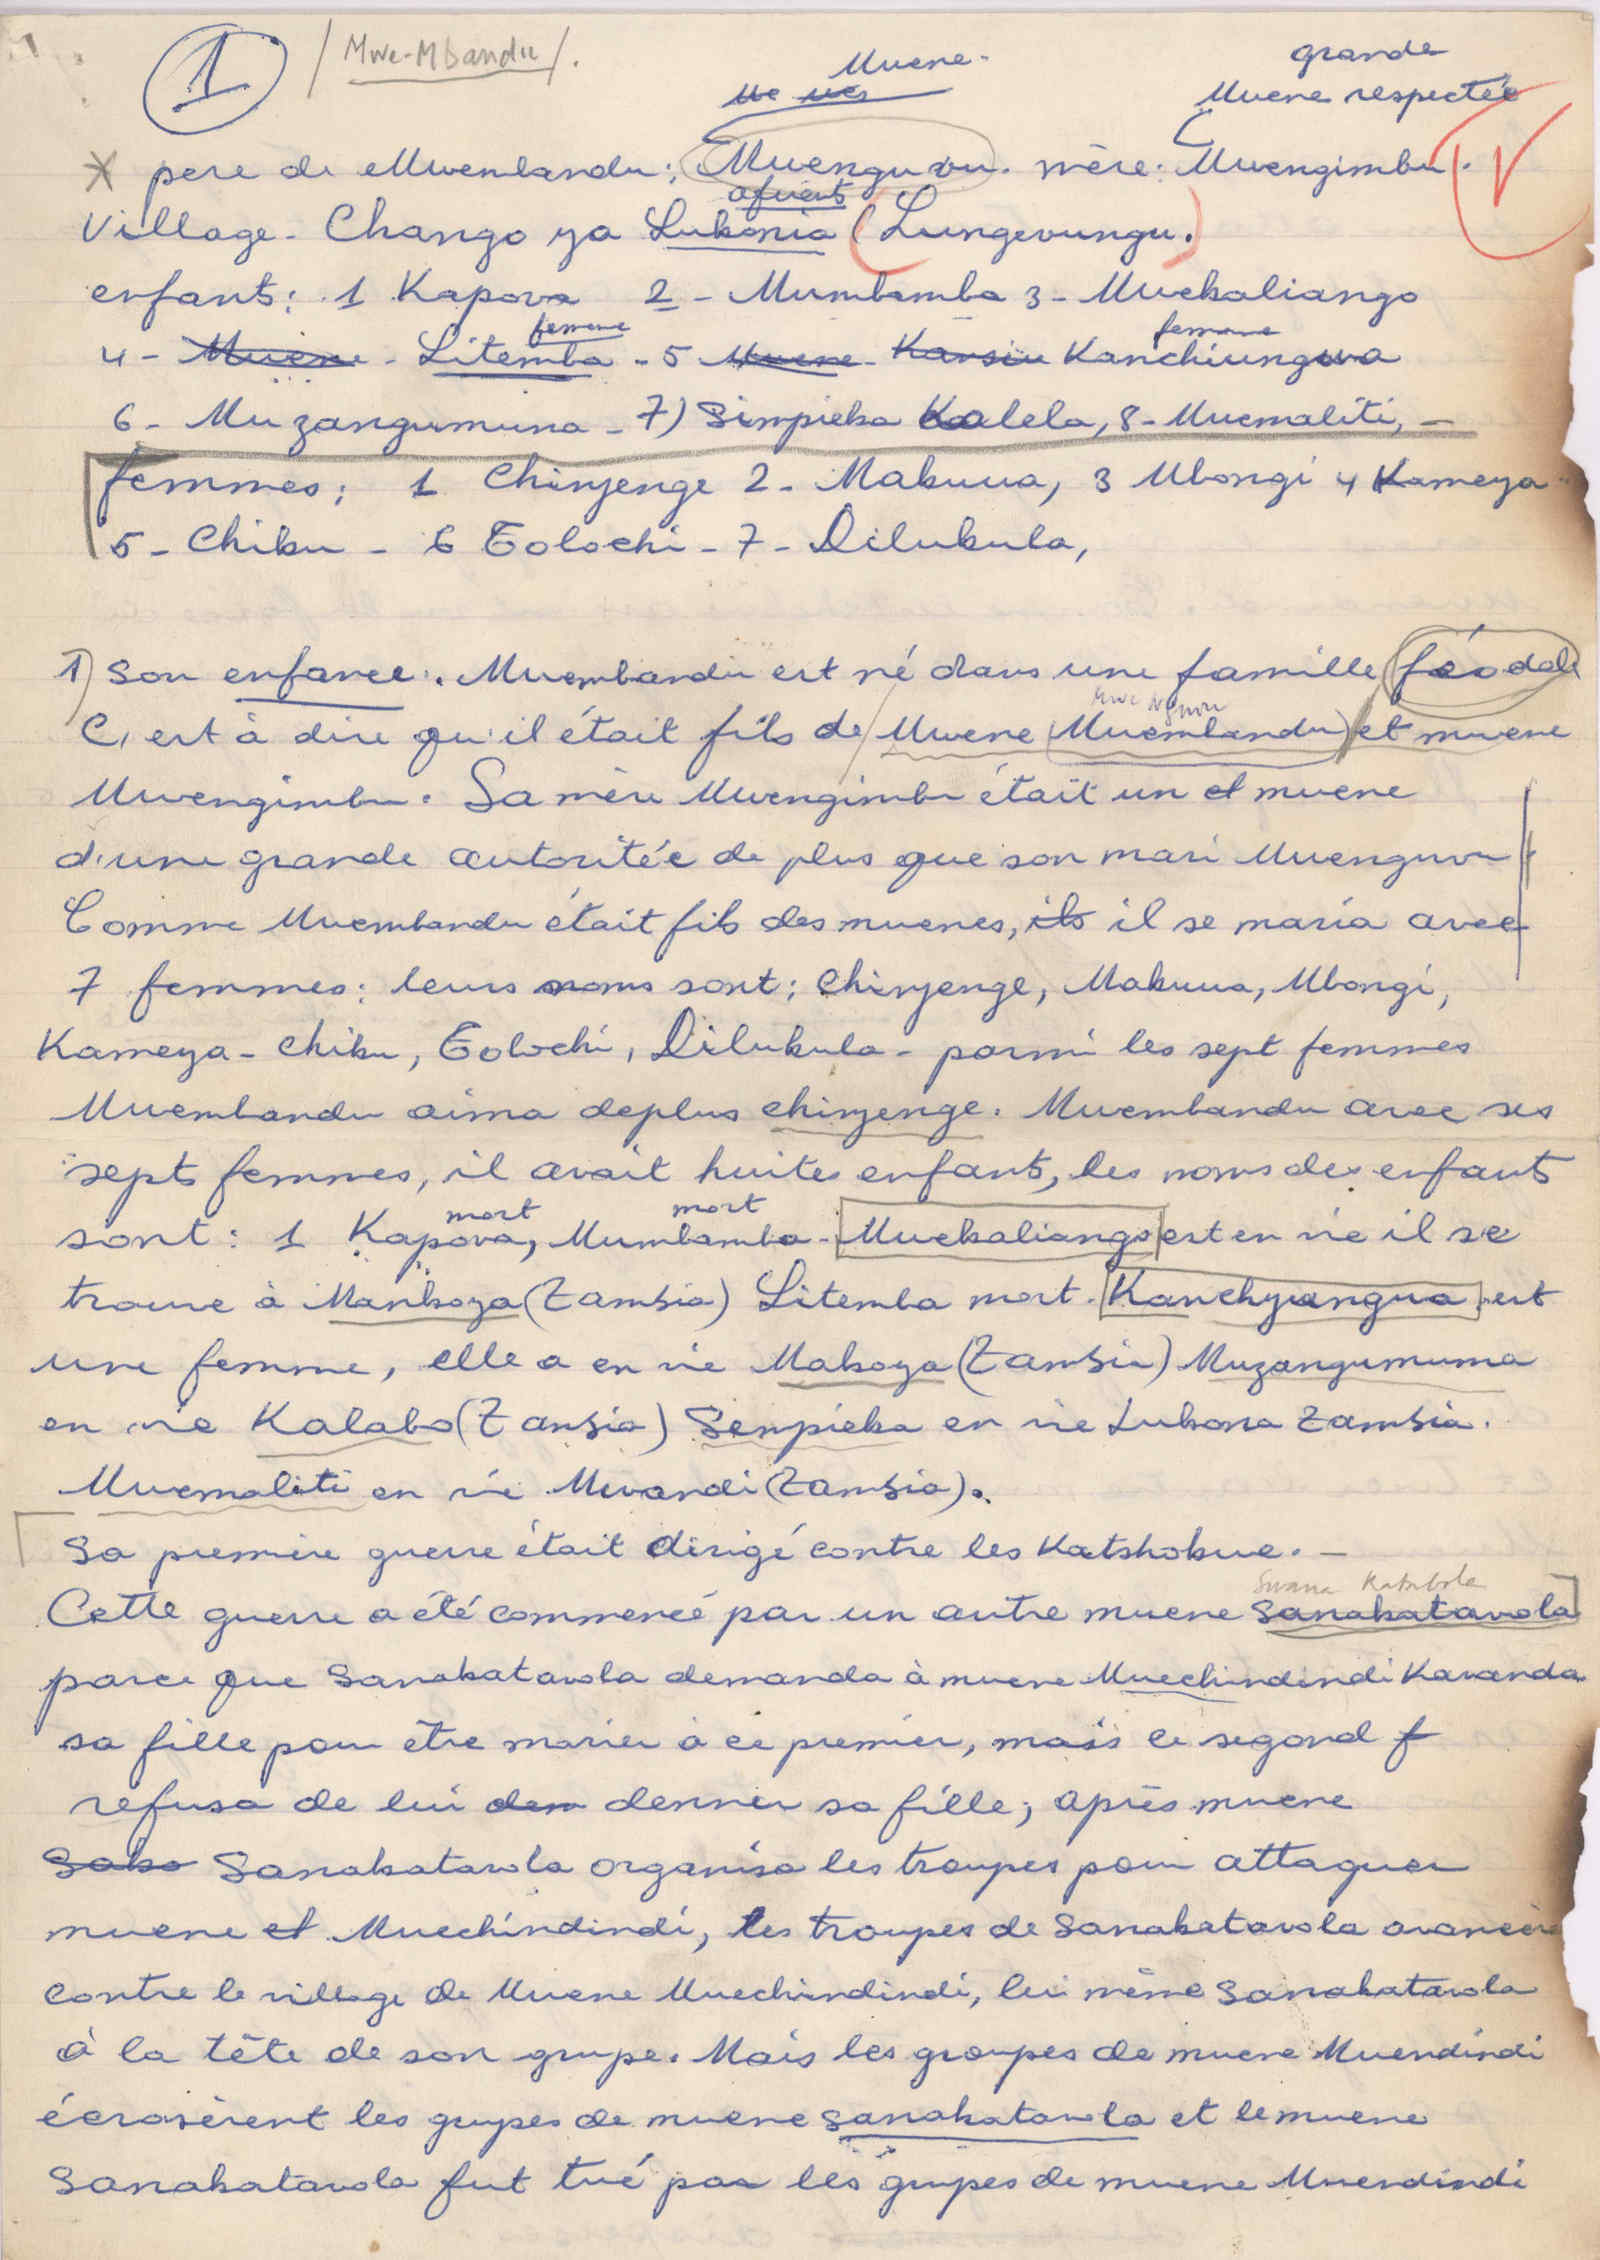 1 / Mwe-Mbandu /.
Muene. grande
Muene respectée
pere de Muembandu: Muenguvu. mère: Muvengimbu.
afluents
Village - Chango ya Lukonia (Lungevungu.)
enfants: 1 Kapova 2 - Mumbamba 3 - Muekaliango
femme femme
4 - Muene - Litemba - 5 Muene - Kansiu Kanchiungwa
6 - Muzangumuna - 7) Simpieka Kalela, 8 - Muemaliti, -
femmes: 1 Chinjenge 2 - Makuua, 3 Mbongi 4 Kameya
5 - Chiku - 6 Tolochi - 7 - Dilukula,
1) Son enfance: Muembandu est né dans une famille féodale
Mwe Nguvu
C, est à dire qu'il était fils de Muene Muembandu et muene
Muvengimbu. Sa mère Muvengimbu était un et muene
d'une grande autoritée de plus que son mari Muenguvu
Comme Muembandu était fils des muenes, ils il se maria avec
7 femmes: leurs noms sont: Chinjenge, Makuua, Mbongi,
Kameya - Chiku, Tolochi, Dilukula - parmi les sept femmes
Muembandu aima deplus chinjenge. Muembandu avec ses
septs femmes, il avait huites enfants, les noms des enfants
mort mort
sont: 1 Kapova, Mumbamba - Muekaliango est en vie il se
trouve à Mankoya (Zambia) Litemba mort. Kanchyungua est
une femme, elle a en vie Makoya (Zambia) Muzangumuma
en vie Kalabo (Zambia) Senpieka en vie Lukona Zambia.
Muemaliti en vie Muandi (Zambia).
Sa première guerre était dirigé contre les Katshokue. -
Swana Katabola
Cette guerre a été commencé par un autre muene Sanakatavola
parce que Sanakatavola demanda à muene Muechindindi Kavanda
sa fille pour être marier à ce premier, mais le segond f
refusa de lui dem denner sa fille; après muene
Saka Sanakatavola organisa les troupes pour attaquer
muene et Muechindindi, les troupes de Sanakatavola avancèr
contre le village de Muene Muechindindi, lui même Sanakatavola
à la tête de son grupe. Mais les groupes de muene Muendindi
écrasèrent les grupes de muene Sanakatavola et le muene
Sanakatavola fut tué par les grupes de muene Muendindi